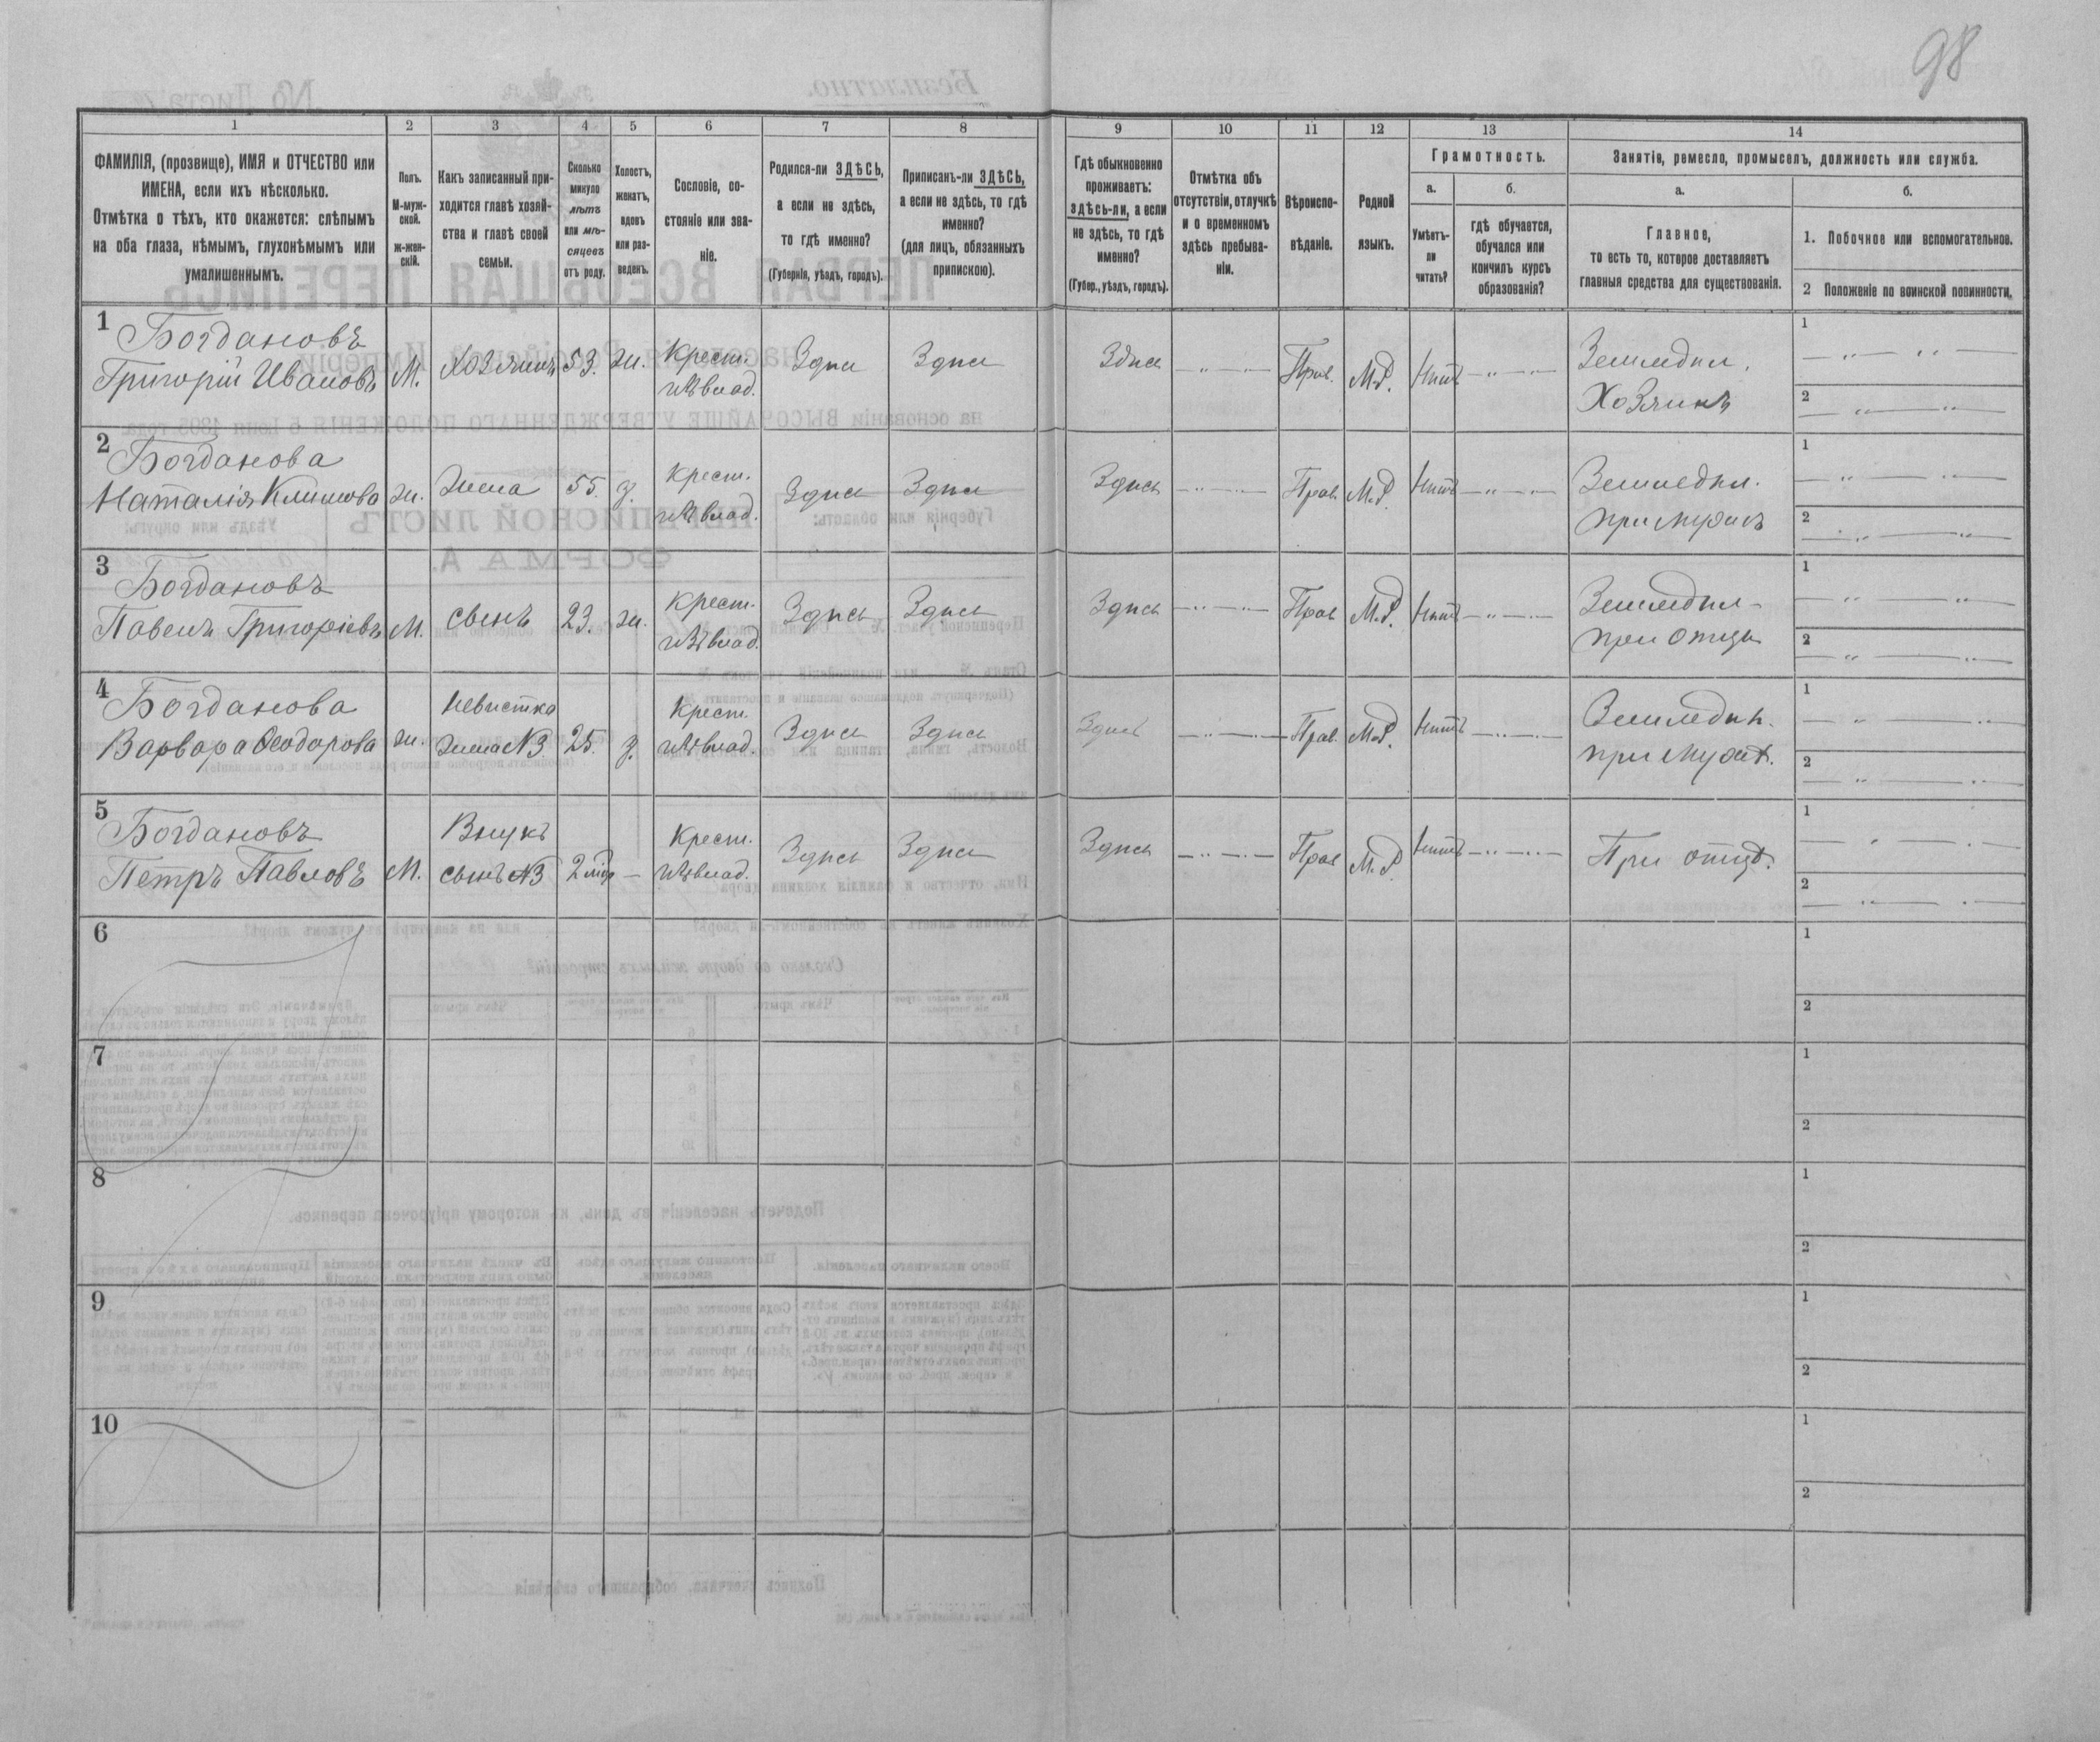 98
1 2 3 4 5 6 7 8 9 10 11 12 13 14
ФАМИЛІЯ, (прозвище), ИМЯ и ОТЧЕСТВО или
ИМЕНА, если ихъ нѣсколько.
Отмѣтка о тѣхъ, кто окажется: слѣпымъ
на оба глаза, нѣмымъ, глухонѣмымъ или
умалишеннымъ.
Полъ.
М-муж-
ской.
Ж-жен-
скій.
Какъ записанный при-
ходится главѣ хозяй-
ства и главѣ своей
семьи.
Сколько
минуло
лѣтъ
или мѣ-
сяцевъ
отъ роду.
Холостъ,
женатъ,
вдовъ
или раз-
веденъ.
Сословіе, со-
стояніе или зва-
ніе.
Родился-ли ЗДѢСЬ,
а если не здѣсь,
то гдѣ именно?
(Губернія, уѣздъ, городъ).
Приписанъ-ли ЗДѢСЬ,
а если не здѣсь, то гдѣ
именно?
(для лицъ, обязанныхъ
припискою).
Гдѣ обыкновенно
проживаетъ:
здѣсь-ли, а если
не здѣсь, то гдѣ
именно?
(Губер., уѣздъ, городъ).
Отмѣтка объ
отсутствіи, отлучкѣ
и о временномъ
здѣсь пребыва-
ніи.
Вѣроиспо-
вѣданіе.
Родной
языкъ.
Грамотность.
а.
Умѣетъ-
ли
читать?
б.
гдѣ обучается,
обучался или
кончилъ курсъ
образованія?
Занятіе, ремесло, промыселъ, должность или служба.
а.
Главное,
то есть то, которое доставляетъ
главныя средства для существованія.
б.
1. Побочное или вспомогательное.
2 Положеніе по воинской повинности.
1 Богдановъ
Григорій Ивановъ М. Хозяинъ 53. ж. Крест. Здѣсь Здѣсь Здѣсь Прав. М.Р. Нѣтъ Земледѣл. Хозяинъ 1 2
2 Богданова
Наталія Климова ж. Жена 55. з. Крест. Здѣсь Здѣсь Здѣсь Прав. М.Р. Нѣтъ Земледѣл. при мужѣ 1 2
3 Богдановъ
Павелъ Григорьевъ М. сынъ 23. ж. Крест. Здѣсь Здѣсь Здѣсь Прав М.Р. Нѣтъ Земледѣл. при отцѣ 1 2
4 Богданова
Варвара Ѳеодорова ж. невѣстка жена №3 25. з. Крест. Здѣсь Здѣсь Здѣсь Прав. М.Р. Нѣтъ Земледѣл. при мужѣ. 1 2
5 Богдановъ
Петръ Павловъ М. Внукъ сынъ №3 2 — Крест. Здѣсь Здѣсь Здѣсь Прав М.Р. Нѣтъ При отцѣ. 1 2
6 1 2
7 1 2
8 1 2
9 1 2
10 1 2